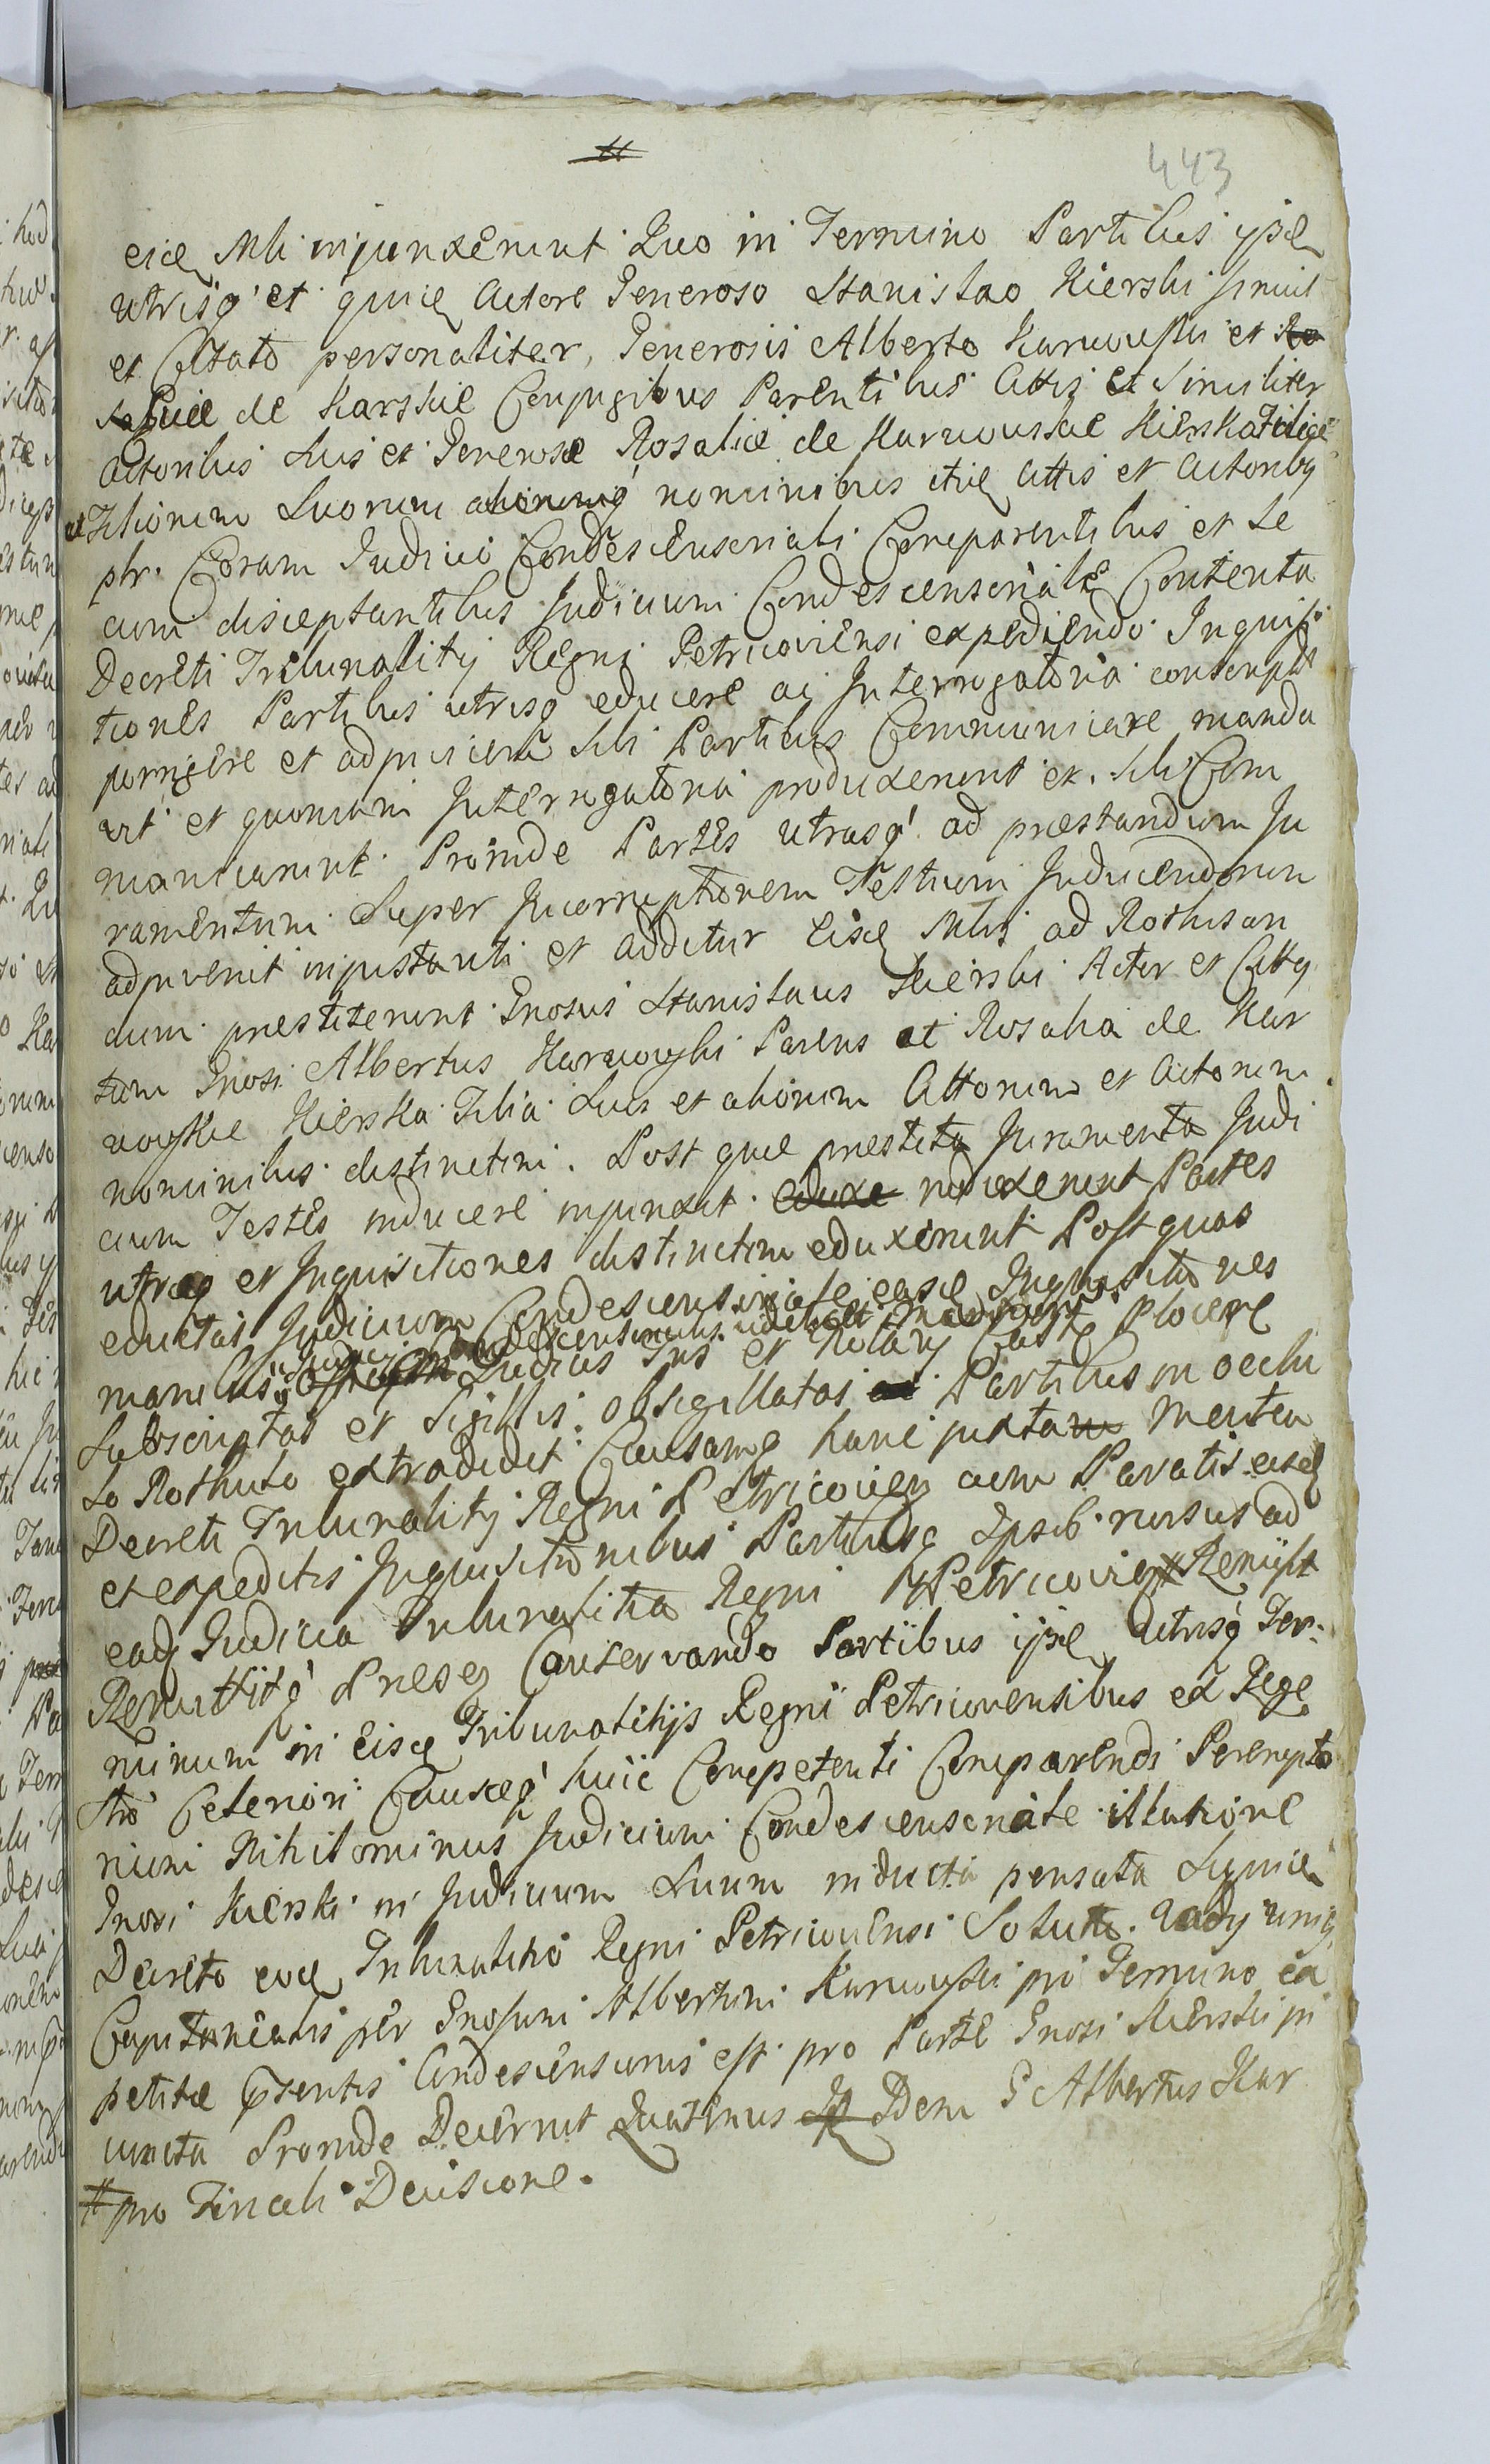 443
eise Mli injunxerunt Quo in Termino Partibus ipse
utrisq et quie Actore Generoso Stanislao Kierski simul
et Citato personaliter, Generosis Alberto Karwowski et Ro
de Karskie Conjugibus Parentibus Attis et Similiter
Actoribus Suis et Generose Rosalie de Karwowskie Kierska Filie
et Filiorum Suorum aliorumq nominibus itie Attis et Actoribq
pbr. Coram Judicio Condescensoriali Comparentibus et Se
cum disceptantibus Judicium Condescensoriale Contenta
Decreti Tribunalitij Regni Petricoviensi expediendo Inquisi
tiones Partibus utrisq educere ac Interrogatoria conscripta
porrigere et adpiscere Sibi Partibus Communicare manda
vit et quoniam Interrogatoria produxerunt et Sibi Com
municarunt Proinde Partes utrasq ad prestandum Ju
ramentum Super Incorruptionem Testium Inducendorum
adinvenit injustanti et additur eise Mlij ad Rothisan
cum prestiterunt Gnosus Stanislaus Kierski Actor et Cittq
tum Gnosi Albertus Karwowski Parens et Rosalia de Kar
wowskie Kierska Filia Suis et aliorum Attorum et Actorum
nominibus distinctim. Post que prestita Juramenta Judi
cium Testes inducere injunxit eduxe induxerunt Partes
utreq et Inquisitiones distinctim eduxerunt Post quas
eductas Judicium Condescensoriale ease Inquisitiones
manibus Judicij Condescensorialis videlicet
Judicis Sui et Notarij Cast plocere
Subscriptas et Sigillis obsigillatas Partibus in oeclu
so Rothulo extradidit Causamq hanc juxtam Mentem
Decreti Tribunalitij Regni Petricovien cum Paratis eise
et expeditis Inquisitionibus Partibusq Ipsib rursus ad
eadq Judicia Tribunalitia Regni # Petricovien # Remisit
Remittitq Presq Conservando Partibus ipse utrisq Ter
minum in eise Tribunalitijs Regni Petricovensibus ex Rege
stro Celeriori Causeq huic Competenti Comparendi Perempto
rium Nihilominus Judicium Condescensoriale illatione
Gnosi Kierski in Judicium Suum inducta pensata
Decreto eoe Tribunalitio Regni Petricoviensi Soluta. Vadij
Capitanealis per Gnosum Albertum Karwowski pro Termino ex
petite Condescensionis est pro Parte Gnosi Kierski in
uncta Proinde Decernit Quatenus Idem G Albertus Kar
# pro Finali Decisione.